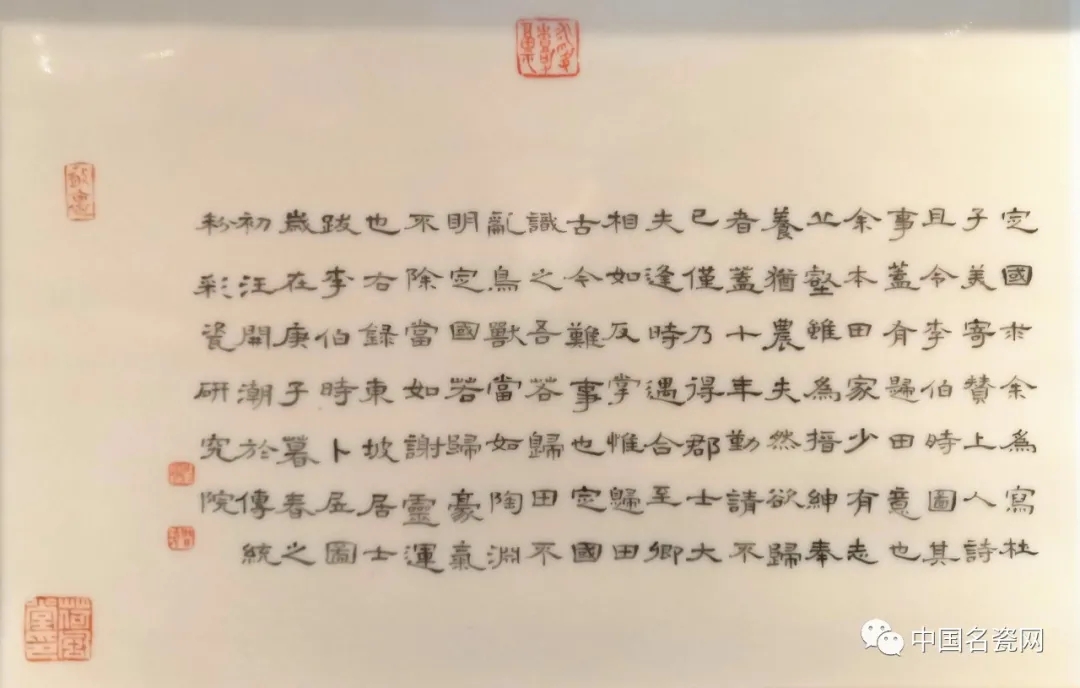 定國求余為寫杜
子美寄贊上人詩
且令李伯時圖其
事蓋有歸田意也
余本田家少有志
丘壑雖為搢紳奉
養猶農夫然欲歸
者蓋十年勤請不
已僅乃得郡士大
夫逢時遇合至卿
相如反掌惟歸田
古今難事也定國
識之吾荅歸田不
亂鳥獸當如陶淵
明定國若歸豪氣
不除當如謝靈運
也右録東坡居士
跋李伯時卜居圖
歲在庚子暮春之
初汪開潮於傳統
粉彩瓷研究院
荷風堂印
中国名瓷网